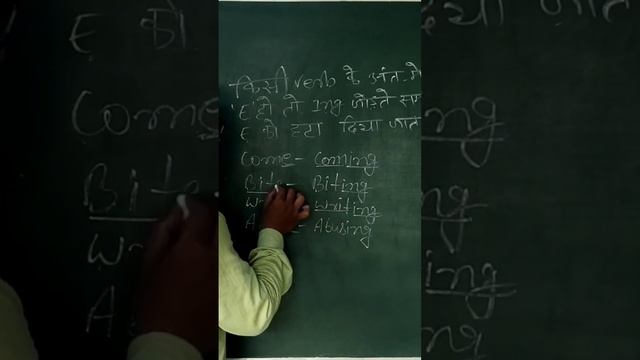 किसी verb के अंत में
'E' हो तो Ing जोड़ते
E को हटा दिया जात
Come - Coming
Bite - Biting
W Writing
A - Abusing